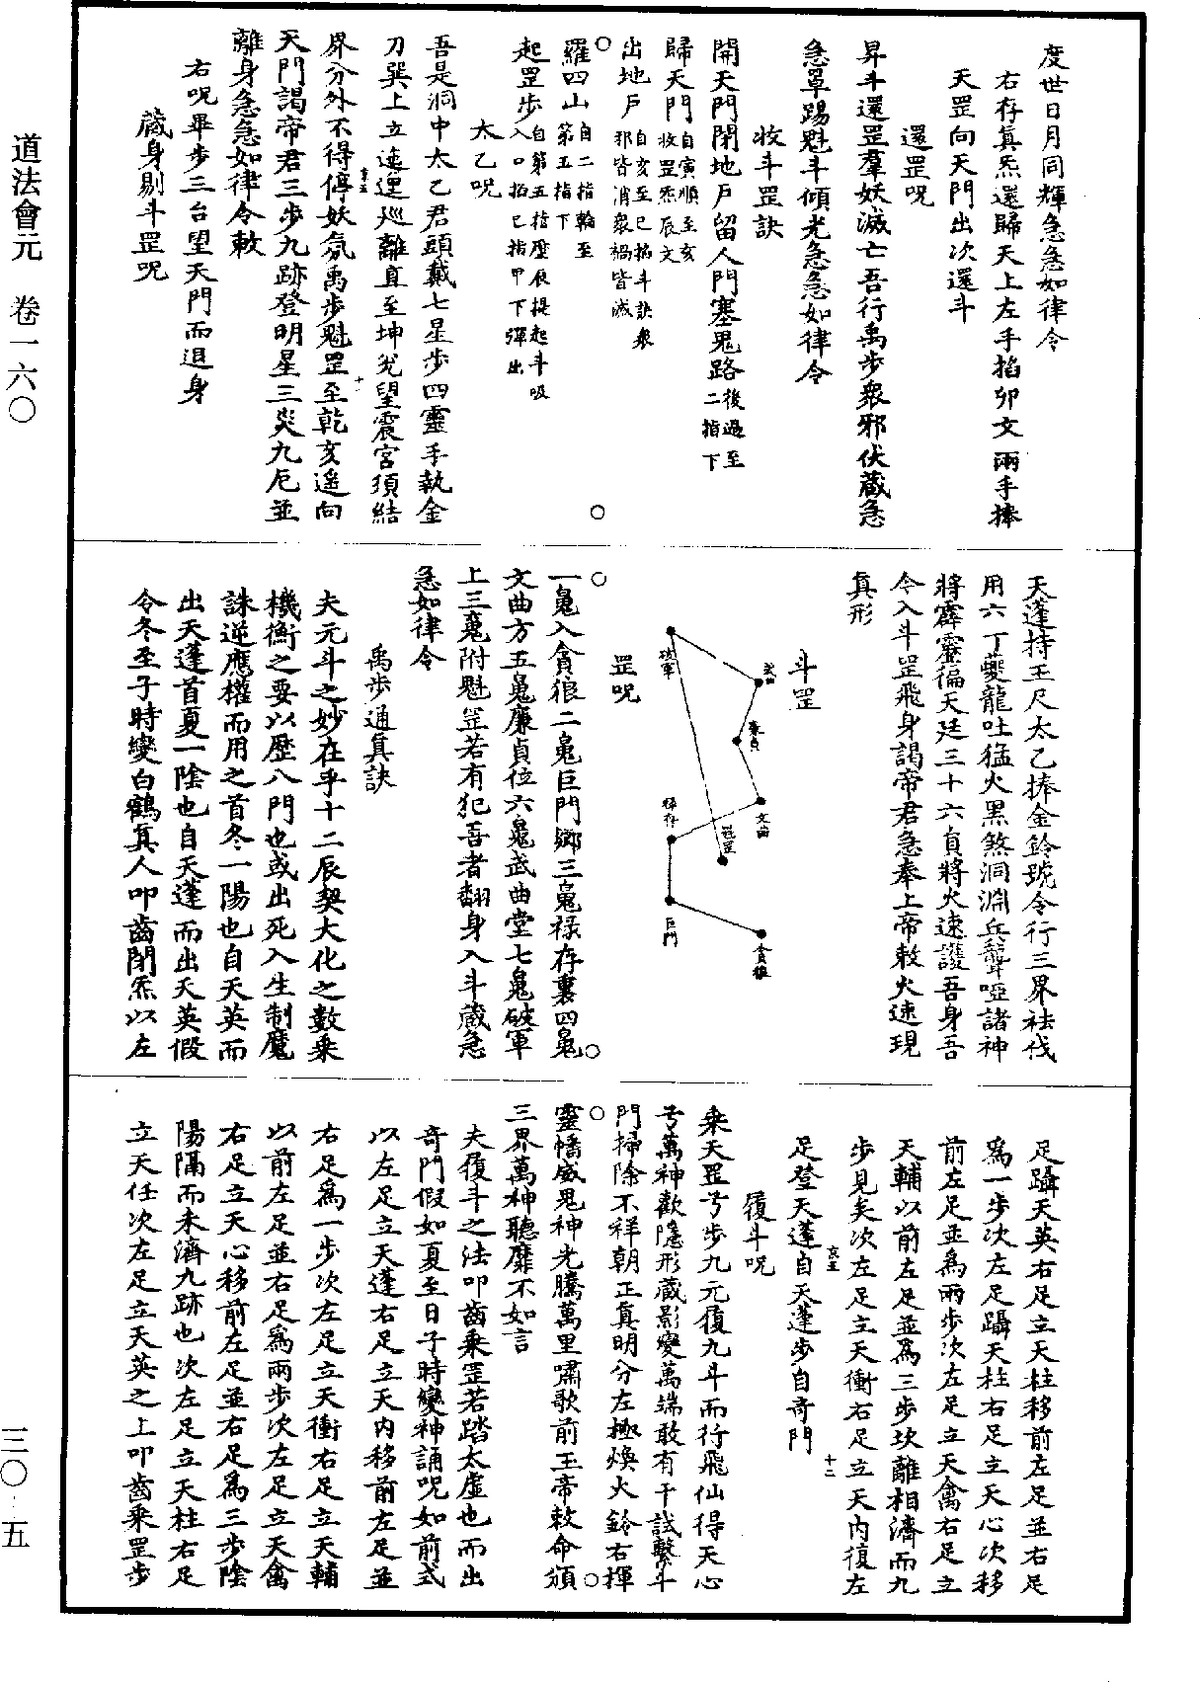 道法會元　卷一六〇
三〇·五
度世日月同輝急急如律令
右存真炁還歸天上左手掐卯文兩手捧
天罡向天門出次還斗
還罡呪
昇斗還罡羣妖滅亡吾行禹步衆邪伏藏急
急罩踢魁斗傾光急急急如律令
收斗罡訣
開天門閉地戶留人門塞鬼路後過至二指下
歸天門自寅順至亥收罡炁辰文
出地戶自亥至巳掐斗訣衆邪皆消衆禍皆滅
羅四山自二指輪至第五指下
起罡步自第五指歷辰提起斗吸入口掐巳指甲下彈出
太乙呪
吾是洞中太乙君頭戴七星步四靈手執金
刀巽上立逡巡離直至坤兌望震宮須結
界分外不得停妖氛禹步魁罡至乾亥遥向
天門謁帝君三步九跡登明星三災九厄並
離身急急如律令敕
右呪畢步三台望天門而退身
藏身剔斗罡呪
天蓬持玉尺太乙捧金鈴號令行三界袪伐
用六丁夔龍吐猛火黑煞洞淵兵聾啞諸神
將霹靂徧天廷三十六貞將火速護吾身吾
令入斗罡飛身謁帝君急奉上帝敕火速現
真形
斗罡
破軍
武曲
廉貞
文曲
祿存
巨門
貪狼
魁罡
罡呪
一䰢入貪狼二䰢巨門鄉三䰢祿存裏四䰢
文曲方五䰢廉貞位六䰢武曲堂七䰢破軍
上三䰢附魁罡若有犯吾者翻身入斗藏急
急如律令
禹步通真訣
夫元斗之妙在乎十二辰契大化之數乗
機衡之要以歷八門也或出死入生制魔
誅逆應權而用之首冬一陽也自天英而
出天蓬首夏一陰也自天蓬而出天英假
令冬至子時變白鶴真人叩齒閉炁以左
足躡天英右足立天柱移前左足並右足
爲一步次左足躡天柱右足立天心次移
前左足並爲兩步次左足立天禽右足立
天輔以前左足並爲三步坎離相濟而九
步見矣次左足立天衝右足立天內復左
足登天蓬自天蓬步自奇門
十二
履斗呪
乗天罡兮步九元復九斗而行飛仙得天心
兮萬神歡隱形藏影變萬端敢有干試繫斗
門掃除不祥朝正真明分左極煥火鈴右揮
靈幡威鬼神光騰萬里嘯歌前玉帝敕命頒
三界萬神聽靡不如言
夫復斗之法叩齒乗罡若踏太虛也而出
奇門假如夏至日子時變神誦呪如前式
以左足立天蓬右足立天內移前左足並
右足爲一步次左足立天衝右足立天輔
以前左足並右足爲兩步次左足立天禽
右足立天心移前左足並右足爲三步陰
陽隔而未濟九跡也次左足立天柱右足
立天任次左足立天英之上叩齒乗罡步